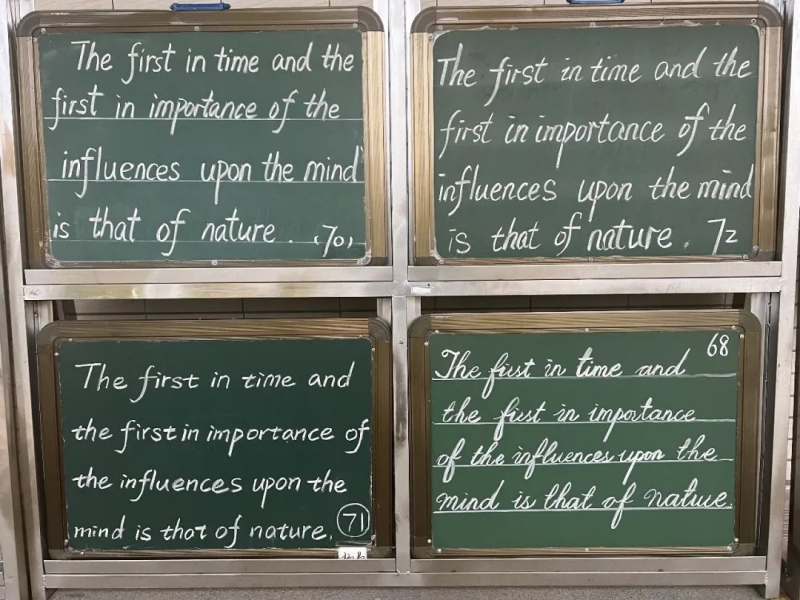 The first in time and the
first in importance of the
influences upon the mind
is that of nature. (70)
The first in time and the
first in importance of the
influences upon the mind
is that of nature. 72
The first in time and
the first in importance of
the influences upon the
mind is that of nature. 71
68
The first in time and
the first in importance
of the influences upon the
mind is that of nature.